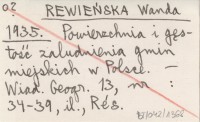 o2 REWIEŃSKA Wanda
1935. Powierzchnia i gęs-
tość zaludnienia gmin
miejskich w Polsce. —
Wiad. Geogr. 13, nr :
34-39, il., Rés.